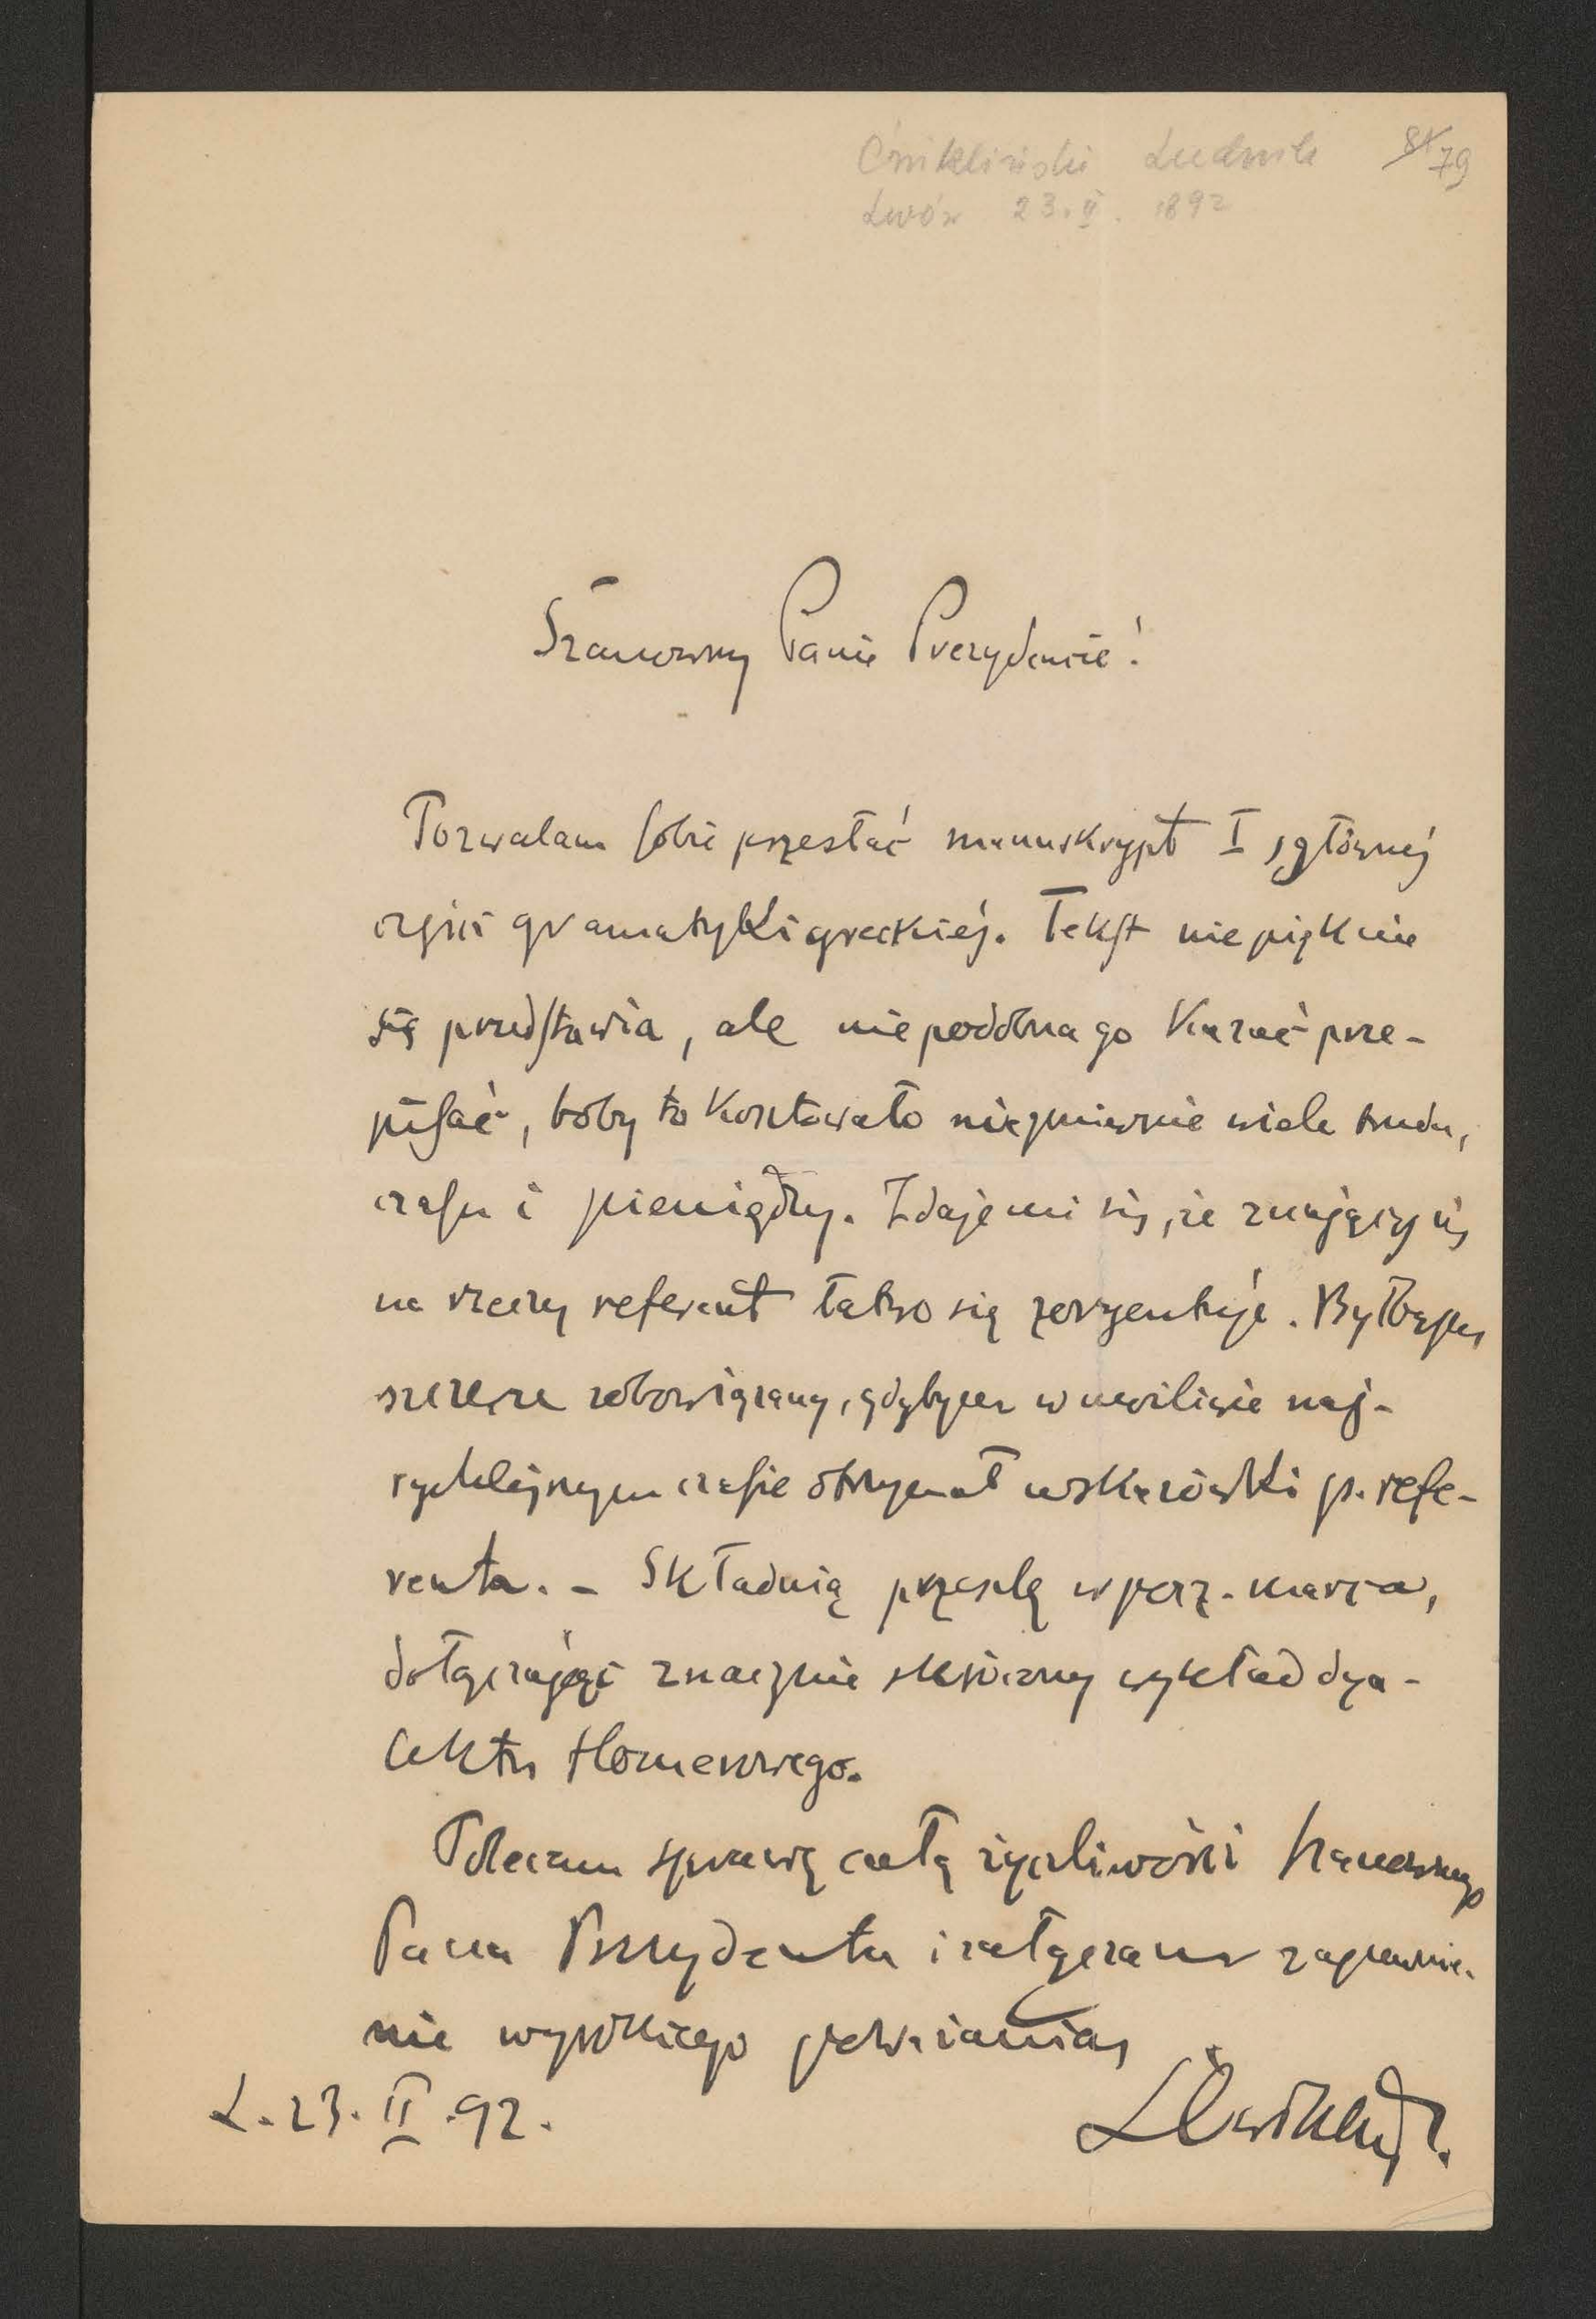 Ćwikliński Ludwik 79
Lwów 23. II. 1892
Szanowny Panie Prezydencie!
Pozwalam sobie przesłać manuskrypt I głównej
części gramatyki greckiej. Tekst nie pięknie
się przedstawia, ale niepodobna go kazać prze-
pisać, boby to kosztowało niezmiernie wiele trudu,
czasu i pieniędzy. Zdaje mi się, że znający się
na rzeczy referent łatwo się zoryentuje. Byłbym
szczerze zobowiązany, gdybym w możliwie naj-
rychlejszym czasie otrzymał wskazówki p. refe-
renta. - Składnią prześlę w pocz. marca,
dołączając znacznie skrócony wykład dya-
lektu Homerowego.
Polecam sprawę całą życzliwości Szanownego
Pana Prezydenta i załączam zapewnie-
nie wysokiego poważania
L. 23. II. 92.
LĆwiklińsk.